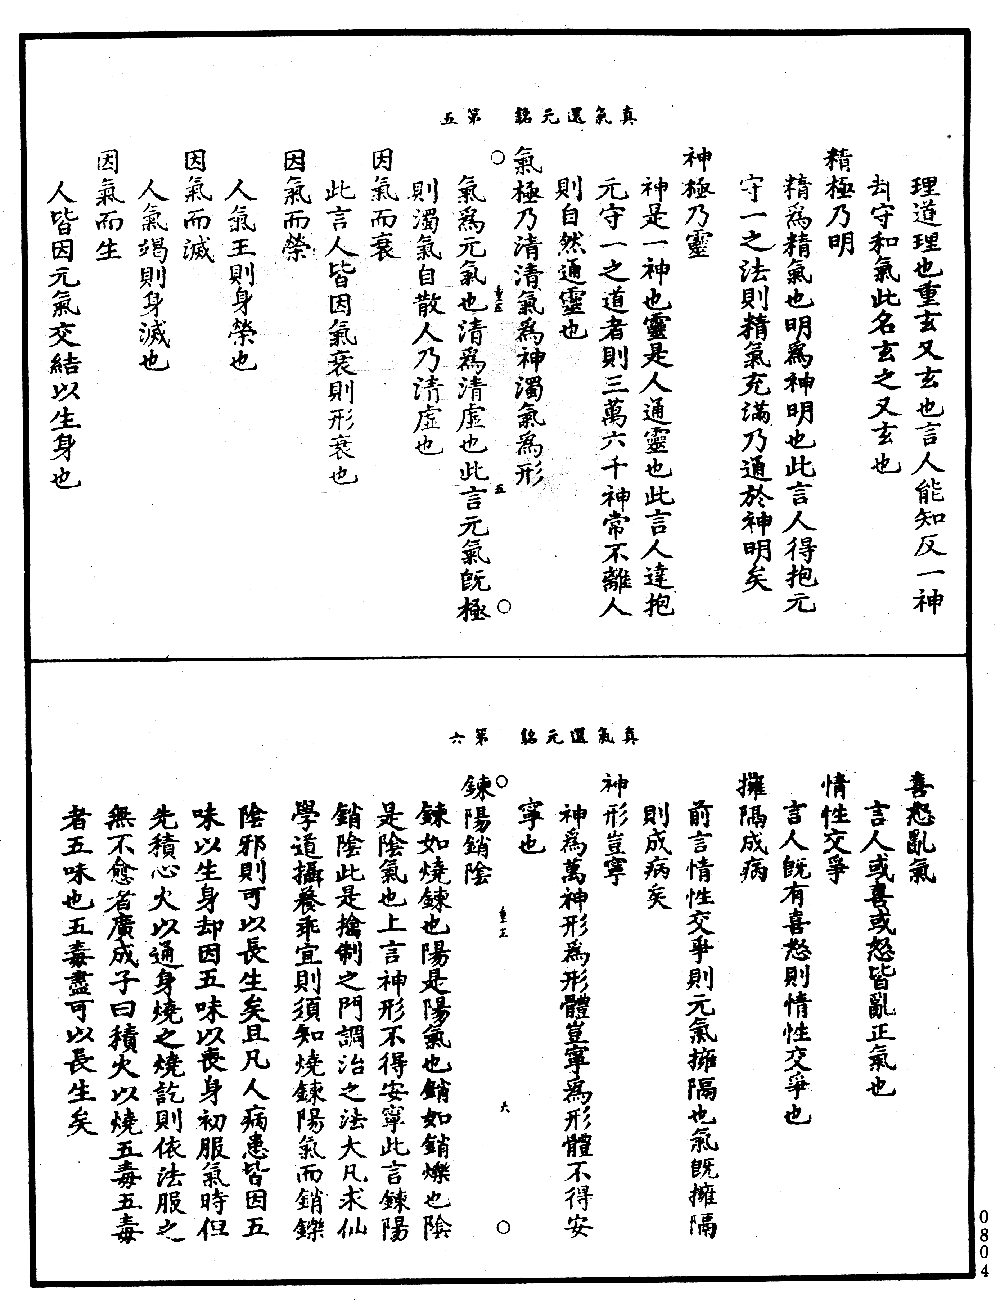 真氣還元銘　第五
理道理也重玄又玄也言人能知反一神
去守和氣此名玄之又玄也
精極乃明
精爲精氣也明爲神明也此言人得抱元
守一之法則精氣充滿乃通於神明矣
神極乃靈
神是一神也靈是人通靈也此言人達抱
元守一之道者則三萬六千神常不離人
則自然通靈也
氣極乃清清氣爲神濁氣爲形
○　重五　五　○
氣爲元氣也清爲清虛也此言元氣旣極
則濁氣自散人乃清虛也
因氣而衰
此言人皆因氣衰則形衰也
因氣而榮
人氣王則身榮也
因氣而滅
人氣竭則身滅也
因氣而生
人皆因元氣交結以生身也
真氣還元銘　第六
喜怒亂氣
言人或喜或怒皆亂正氣也
情性交爭
言人旣有喜怒則情性交爭也
擁隔成病
前言情性交爭則元氣擁隔也氣旣擁隔
則成病矣
神形豈寧
神爲萬神形爲形體豈寧爲形體不得安
寧也
○　重五　六　○
鍊陽銷陰
鍊如燒鍊也陽是陽氣也銷如銷爍也陰
是陰氣也上言神形不得安寧此言鍊陽
銷陰此是擒制之門調治之法大凡求仙
學道攝養乖宜則須知燒鍊陽氣而銷鑠
陰邪則可以長生矣且凡人病患皆因五
味以生身却因五味以喪身初服氣時但
先積心火以通身燒之燒訖則依法服之
無不愈者廣成子曰積火以燒五毒五毒
者五味也五毒盡可以長生矣
0804